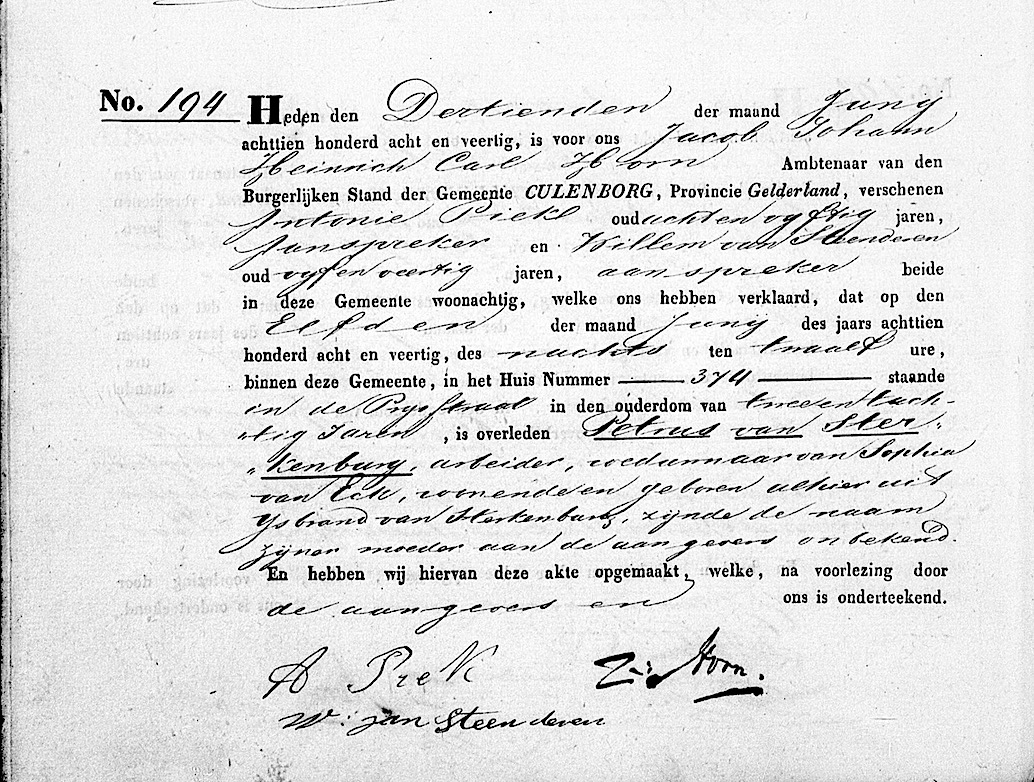 No. 194 Heden den Dertienden der maand Junij
achttien honderd acht en veertig, is voor ons Jacob Johann
Heinrich Carl Horn Ambtenaar van den
Burgerlijken Stand der Gemeente CULENBORG, Provincie Gelderland, verschenen
Antonie Piek oud acht en vyftig jaren,
Aanspreker en Willem van Steenderen
oud vyf en veertig jaren, aanspreker beide
in deze Gemeente woonachtig, welke ons hebben verklaard, dat op den
Elfden der maand Junij des jaars achttien
honderd acht en veertig, des nachts ten twaalf ure,
binnen deze Gemeente, in het Huis Nummer 374 staande
in de Prysstraat in den ouderdom van twee en tach-
tig Jaren, is overleden Petrus van Ster-
kenburg, arbeider, weduwnaar van Sophia
van Eck, wonende en geboren alhier uit
Ysbrand van Sterkenburg, zijnde de naam
zijner moeder aan de aangevers onbekend.
En hebben wij hiervan deze akte opgemaakt, welke, na voorlezing door
de aangevers en ons is onderteekend.
A Piek Horn.
W: van Steenderen